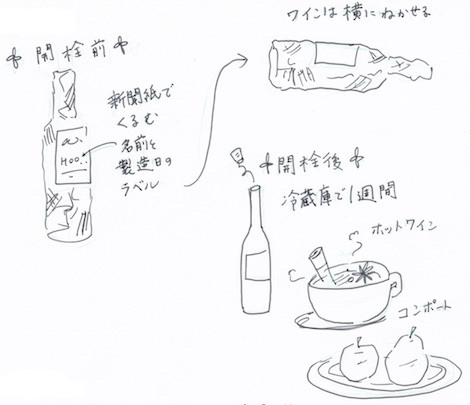 ワインは横にねかせる
開栓前
新聞紙で
くるむ
名前と
製造日の
ラベル
HOO..
開栓後
冷蔵庫で1週間
ホットワイン
コンポート